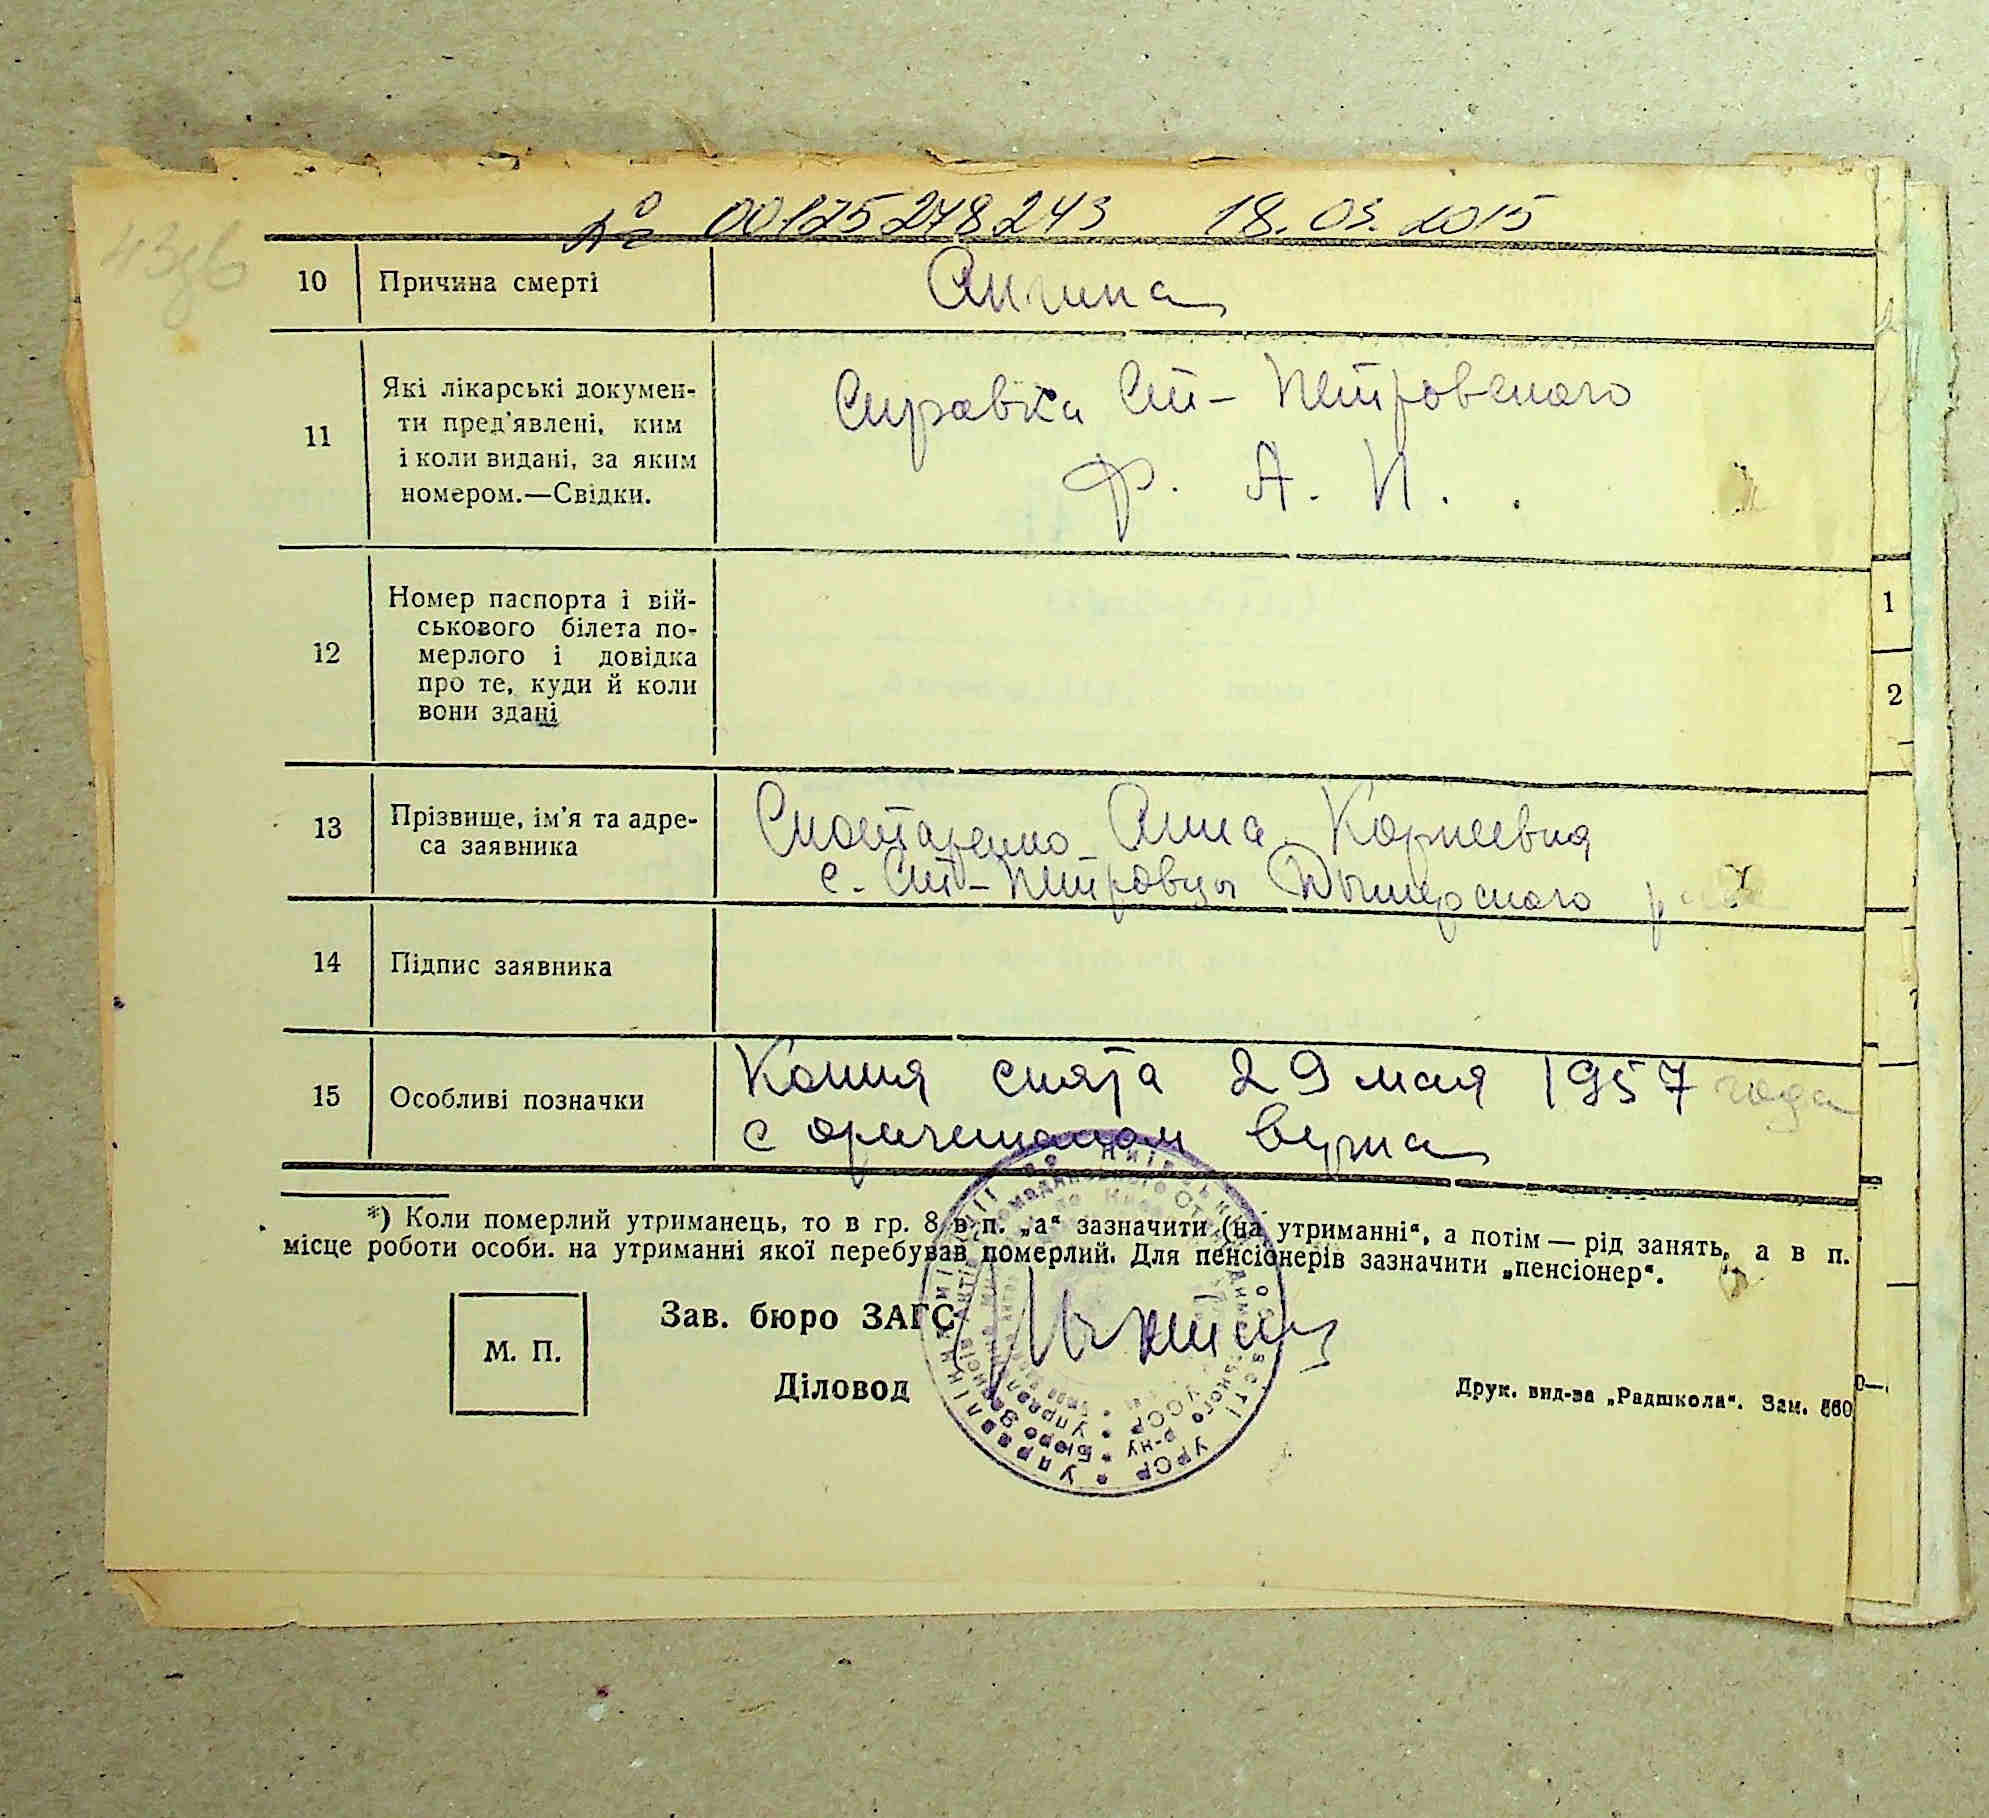 43зв
№ 00125278243 18.03.2015
10 Причина смерті Ангина
11 Які лікарські докумен-
ти пред'явлені, ким
і коли видані, за яким
номером.—Свідки.
Справка Ст-Петровского
Ф. А. П.
12 Номер паспорта і вій-
ськового білета по-
мерлого і довідка
про те, куди й коли
вони здані
13 Прізвище, ім'я та адре-
са заявника
Анна Корнеевна
с. Ст-Петровцы Дымерского
14 Підпис заявника
15 Особливі позначки
Копия снята 29 мая 1957 года
с оригиналом верна
*) Коли померлий утриманець, то в гр. 8 в п. „а“ зазначити (на утриманні“, а потім — рід занять, а в п.
місце роботи особи. на утриманні якої перебував померлий. Для пенсіонерів зазначити „пенсіонер“.
М. П.
Зав. бюро ЗАГС
Діловод
Друк. вид-ва „Радшкола“. Зам. 560
1
2